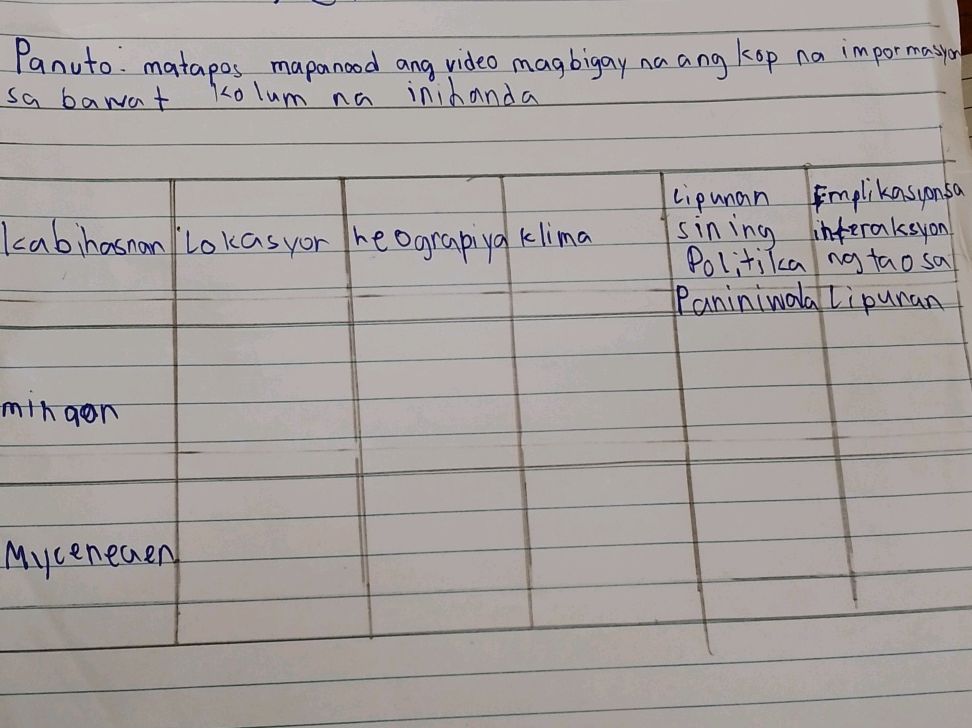 Panuto: matapos mapanood ang video magbigay na ang kop na impormasyon
sa bawat kolum na inihanda
kabihasnan
Lokasyor
heograpiya
klima
Lipunan
sining
Politika
Paniniwala
Emplikasyon sa
interaksyon
ng tao sa
Lipunan
minaon
Myceneaen